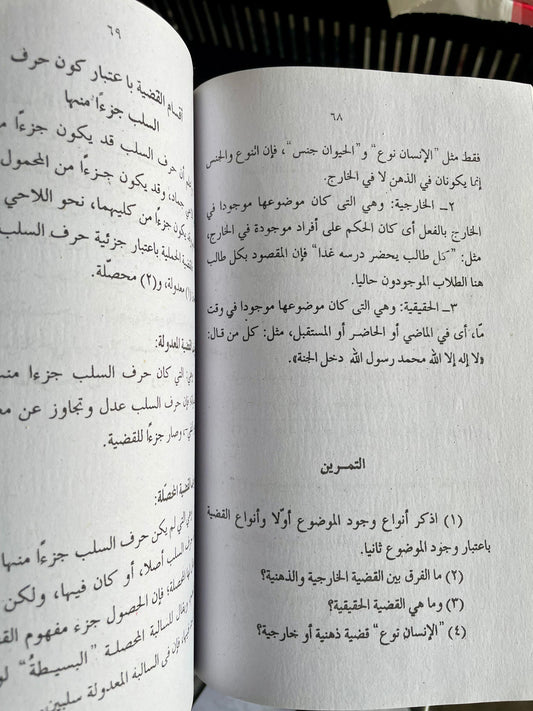 ٦٨
فقط مثل "الإنسان نوع" و"الحيوان جنس"، فإن النوع والجنس
إنما يكونان في الذهن لا في الخارج.
٢ـ الخارجية: وهي التى كان موضوعها موجودا في
الخارج بالفعل أى كان الحكم على أفراد موجودة في الخارج،
مثل: "كل طالب يحضر درسه غدا" فإن المقصود بكل طالب
هنا الطلاب الموجودون حاليا.
٣ـ الحقيقية: وهي التى كان موضوعها موجودا في وقت
مّا، أى في الماضي أو الحاضر أو المستقبل، مثل: كل من قال:
«لا إله إلا الله محمد رسول الله دخل الجنة».
التمرين
(١) اذكر أنواع وجود الموضوع أوّلا وأنواع القضية
باعتبار وجود الموضوع ثانيا.
(٢) ما الفرق بين القضية الخارجية والذهنية؟
(٣) وما هي القضية الحقيقية؟
(٤) "الإنسان نوع" قضية ذهنية أو خارجية؟
٦٩
أقسام القضية باعتبار كون حرف
السلب جزءًا منها
أن حرف السلب قد يكون جزءًا
جماد، وقد يكون جزءًا من المحمول
يكون جزءًا من كليهما، نحو اللاحي
الحملية باعتبار جزئية حرف السلب
معدولة، و(٢) محصلّة.
القضية المعدولة:
التي كان حرف السلب جزءا منها
فإن حرف السلب عدل وتجاوز عن
وصار جزءًا للقضية.
القضية المحصّلة:
التي لم يكن حرف السلب جزءًا منها
السلب أصلا، أو كان فيها، ولكن
المحصلة؛ فإن الحصول جزء مفهوم
يقال للسالبة المحصلة "البسيطةُ"
فإن في السالبة المعدولة سلبين